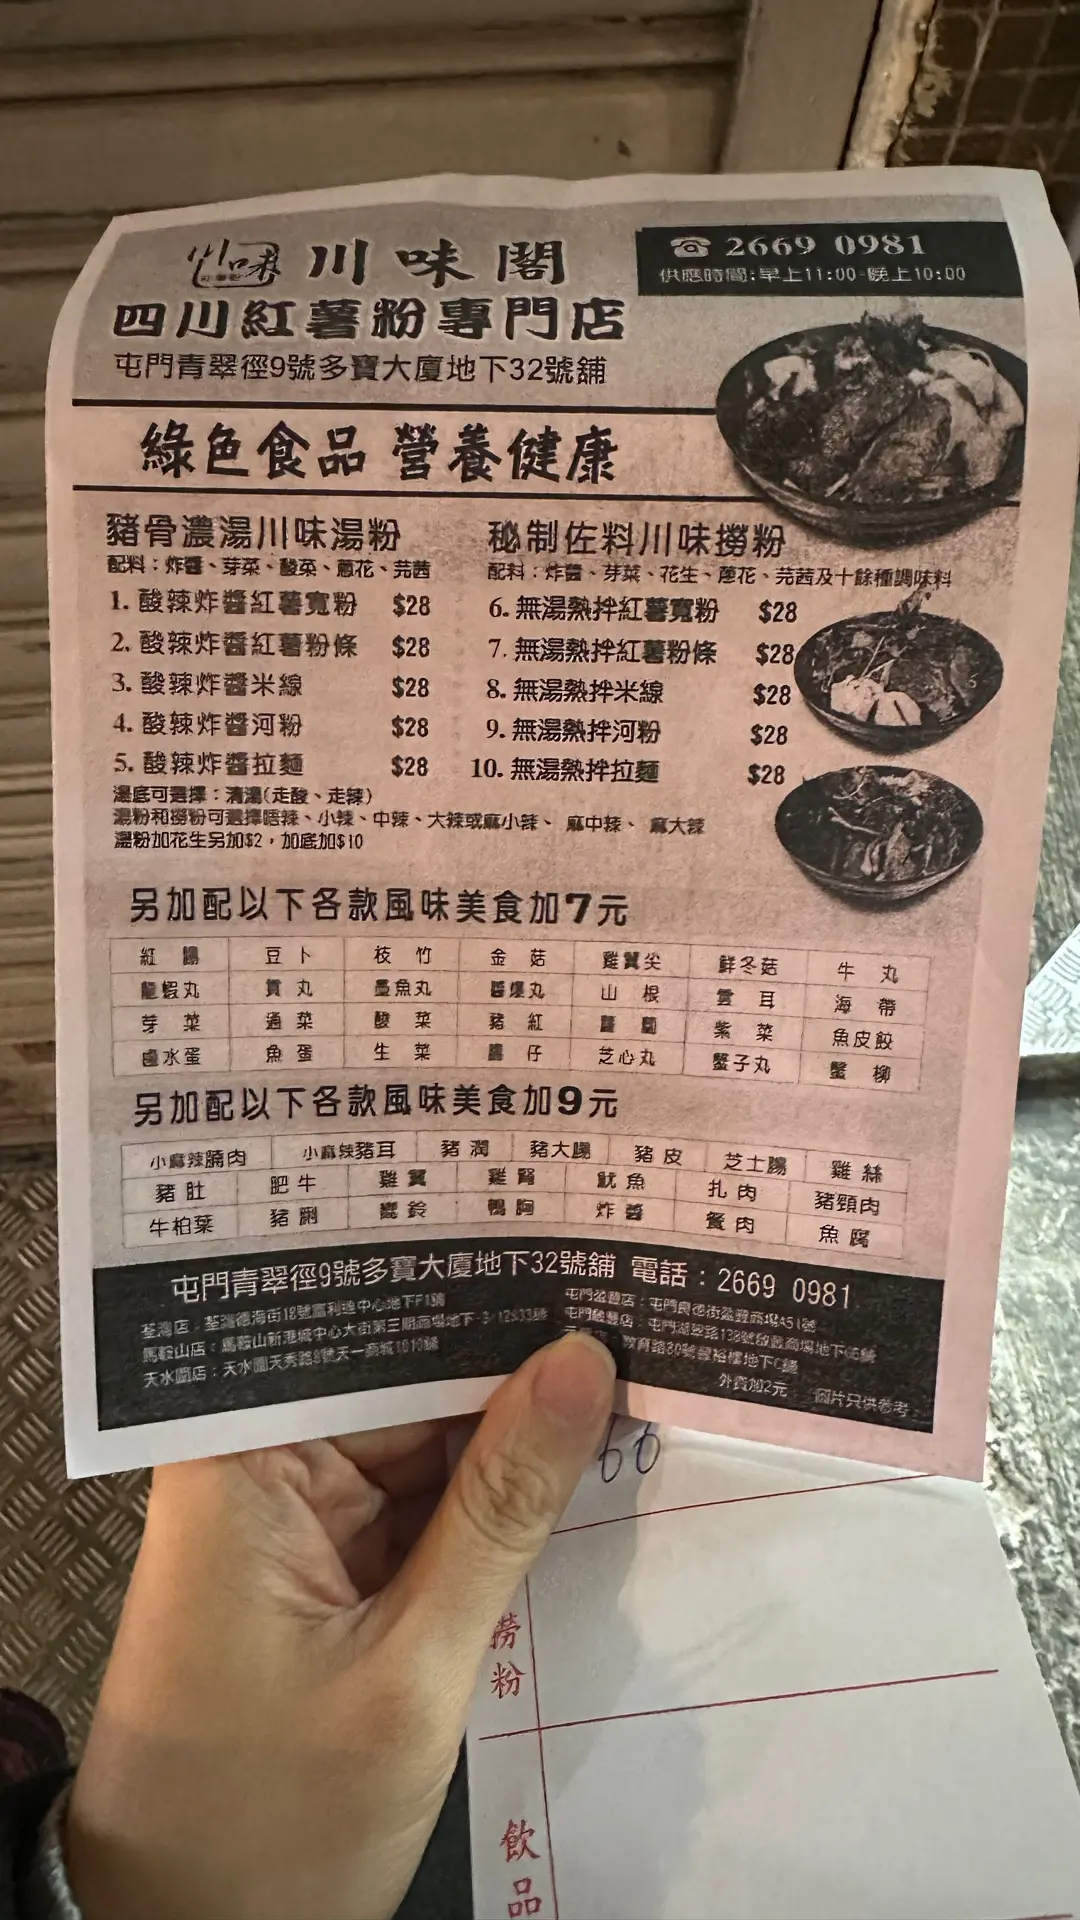 川味 川味閣
四川紅薯粉專門店
屯門青翠徑9號多寶大廈地下32號舖
☎ 2669 0981
供應時間:早上11:00-晚上10:00
綠色食品 營養健康
豬骨濃湯川味湯粉
配料：炸醬、芽菜、酸菜、蔥花、芫茜
1. 酸辣炸醬紅薯寬粉 $28
2. 酸辣炸醬紅薯粉條 $28
3. 酸辣炸醬米線 $28
4. 酸辣炸醬河粉 $28
5. 酸辣炸醬拉麵 $28
秘制佐料川味撈粉
配料：炸醬、芽菜、花生、蔥花、芫茜及十餘種調味料
6. 無湯熱拌紅薯寬粉 $28
7. 無湯熱拌紅薯粉條 $28
8. 無湯熱拌米線 $28
9. 無湯熱拌河粉 $28
10. 無湯熱拌拉麵 $28
湯底可選擇：清湯(走酸、走辣)
湯粉和撈粉可選擇唔辣、小辣、中辣、大辣或麻小辣、 麻中辣、 麻大辣
湯粉加花生另加$2，加底加$10
另加配以下各款風味美食加7元
紅腸 豆卜 枝竹 金菇 雞翼尖 鮮冬菇 牛丸
龍蝦丸 貢丸 墨魚丸 醬爆丸 山根 雲耳 海帶
芽菜 通菜 酸菜 豬紅 蘿蔔 紫菜 魚皮餃
鹵水蛋 魚蛋 生菜 腸仔 芝心丸 蟹子丸 蟹柳
另加配以下各款風味美食加9元
小麻辣腩肉 小麻辣豬耳 豬潤 豬大腸 豬皮 芝士腸 雞絲
豬肚 肥牛 雞翼 雞腎 魷魚 扎肉 豬頸肉
牛柏葉 豬脷 響鈴 鴨胸 炸醬 餐肉 魚腐
屯門青翠徑9號多寶大廈地下32號舖 電話：2669 0981
荃灣店：荃灣德海街18號富利達中心地下F1舖
馬鞍山店：馬鞍山新港城中心大街第三期商場地下
天水圍店：天水圍天秀路8號天一商城1010舖
屯門盈豐店：屯門良德街盈豐商場A51號
屯門啟豐店：屯門湖翠路138號啟豐商場地下
教育路30號豐裕樓地下C舖
外賣加2元 圖片只供參考
66
撈粉
飲品